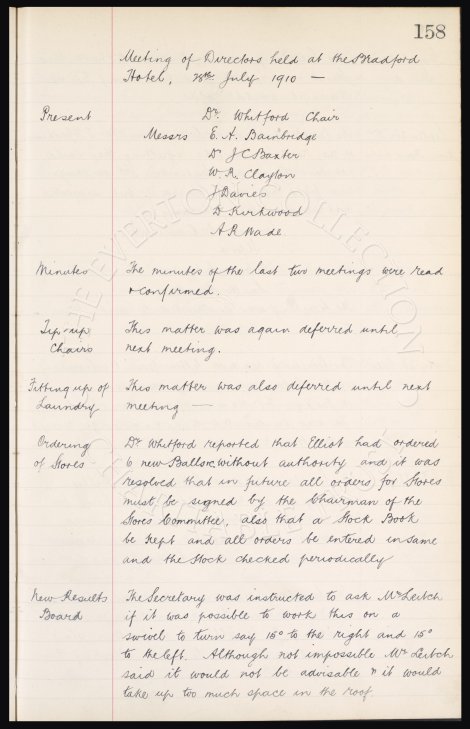 158
Meeting of Directors held at the Bradford
Hotel, 28th July 1910 —
Present
Dr. Whitford Chair
Messrs E. A. Bainbridge
Dr J C Baxter
W. R. Clayton
J Davies
D Kirkwood
A R Wade
Minutes
The minutes of the last two meetings were read
& confirmed.
Tip-up
Chairs
This matter was again deferred until
next meeting.
Fitting up of
Laundry
This matter was also deferred until next
meeting —
Ordering
of Stores
Dr Whitford reported that Elliot had ordered
6 new Balls without authority and it was
resolved that in future all orders for Stores
must be signed by the Chairman of the
Stores Committee, also that a Stock Book
be kept and all orders be entered in same
and the Stock checked periodically
New Results
Board
The Secretary was instructed to ask Mr Leitch
if it was possible to work this on a
swivel to turn say 15° to the right and 15°
to the left. Although not impossible Mr Leitch
said it would not be advisable it would
take up too much space in the roof.
THE EVERTON COLLECTION